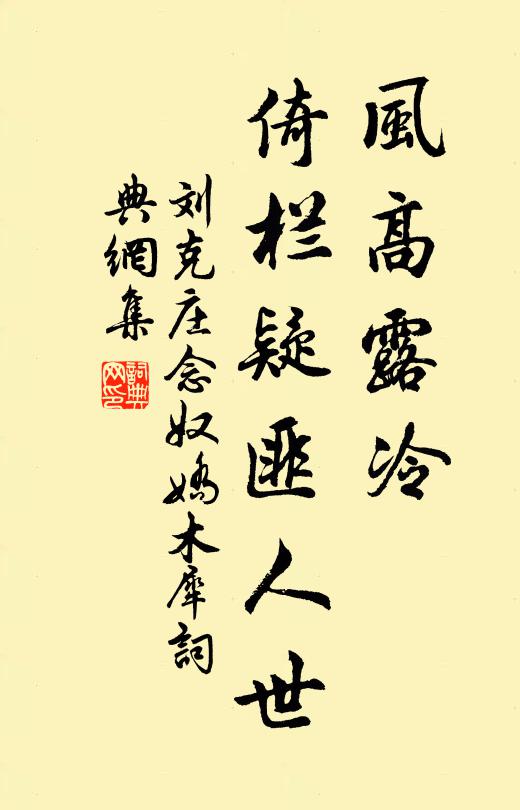 風高露冷
倚栏疑匪人世
刘克庄念奴嬌木犀詞
典網集
詞典网印